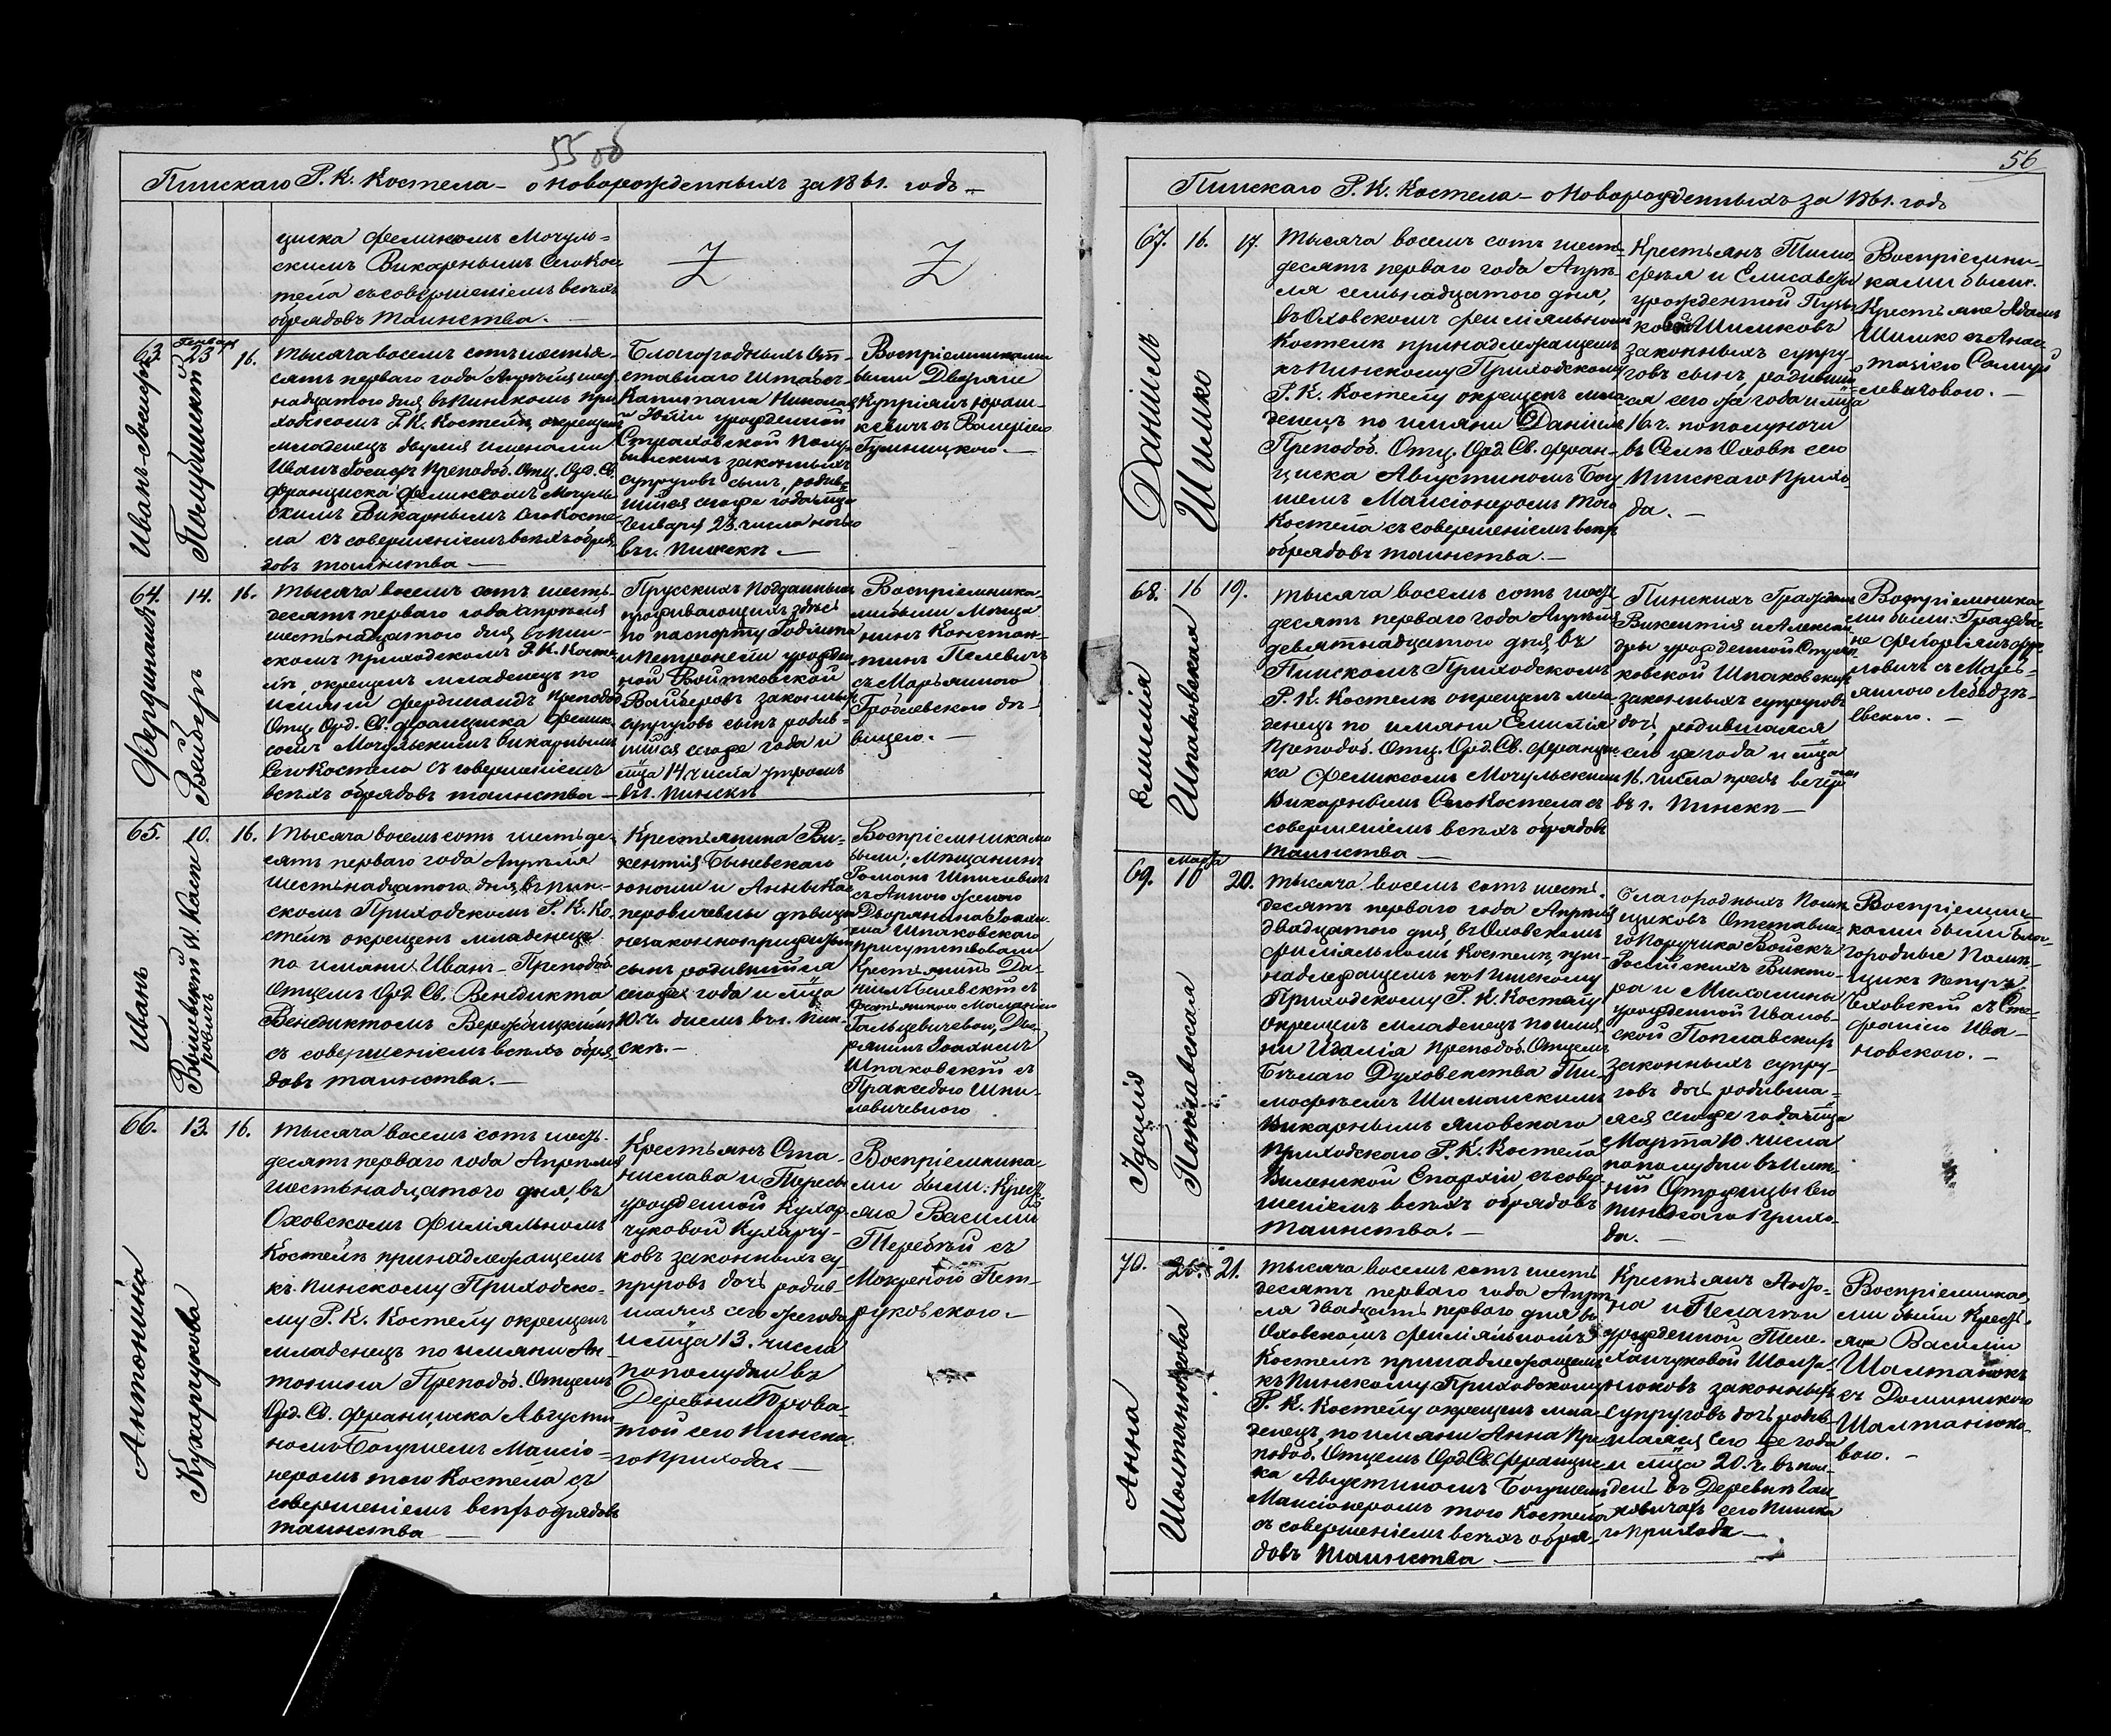 55 об
Пинскаго Р. К. Костела – о новорожденныхъ за 1861. годъ
циска Феликсомъ Мочуль=
скимъ Викарнымъ сего Кос
тела съ совершеніемъ всѣхъ
обрядовъ таинства. —
63.
Генваря
23
16.
Иванъ-Іосафъ
Тысяча восемь сотъ шестьде-
сятъ перваго года Апрѣля шест
надцатого дня въ Пинскомъ При
ходскомъ Р. К. Костелѣ, окрещенъ
младенецъ двумя именами
Иванъ Іосафъ Преподоб. Отц. Орд. Св.
Франциска Феликсомъ Мочуль-
скимъ Викарнымъ сего Косте-
ла съ совершеніемъ всѣхъ обря-
довъ таинства —
Благородныхъ От-
ставнаго Штабсъ-
Капитана Николая
и Юліи урожденной
Страховской
законныхъ
супруговъ сынъ, родив-
шійся сего же года мца
Генваря 23. числа ночью
въ г. Пинскѣ. —
Воспріемниками
были Дворяне
Купріянъ
съ Валеріею
64.
14.
16.
Фердинандъ
Вейберъ
Тысяча восемь сотъ шесть-
десятъ перваго года Апрѣля
шестьнадцатаго дня въ Пин-
скомъ приходскомъ Р. К. Косте-
лѣ, окрещенъ младенецъ по
имяни Фердинандъ Преподоб
Отц. Орд. Св. Франциска Феликс
сомъ Мочульскимъ Викарнымъ
Сего Костела съ совершеніемъ
всѣхъ обрядовъ таинства —
Прусскихъ Подданныхъ
проживающихъ здѣсь
по паспорту
и Петронели урожден
ной Войтковской
Вайберовъ законныхъ
супруговъ сынъ родив-
шійся сего же года и
мца 14 числа утромъ
въ г. Пинскѣ
Воспріемника-
ми были Мѣща
нинъ Констан-
тинъ Пелевичъ
съ Марьянною
дѣ-
вицею. —
65.
10.
16.
Иванъ
Тысяча восемь сотъ шестьде-
сятъ перваго года Апрѣля
Шестьнадцатого дня, въ Пин-
скомъ Приходскомъ Р. К. Ко-
стелѣ окрещенъ младенецъ
по имяни Иванъ - Преподоб
Отцемъ Орд. Св. Бенедикта
Бенедиктомъ
съ совершеніемъ всѣхъ обря-
довъ таинства. —
Крестьянина Ви-
кентія
юноши и Анны Кас
перовичевны дѣвицы
незаконноприжитый
сынъ родившійся
сего же года и мца
10. ч. днемъ въ г. Пин-
скѣ. —
Воспріемниками
были: Мѣщанинъ
Романъ Шпилевичъ
съ Анною женою
Дворянина Іоахи
ма Шпаковскаго
присутствовали
Крестьянинъ Да-
нилъ съ
Дво-
рянинъ Іоахимъ
Шпаковскій съ
Пракседою Шпи-
левичевною
66.
13.
16.
Антонина
Кухарчукова
Тысяча восемь сотъ шесть-
десятъ перваго года Апрѣля
шестьнадцатого дня, въ
Оховскомъ Филіяльномъ
Костелѣ принадлежащемъ
къ Пинскому Приходско-
му Р. К. Костелу окрещенъ
младенецъ по имяни Ан
тонина Преподоб. Отцемъ
Орд. Св. Франциска Августи
номъ Богушемъ Мансіо-
неромъ того Костела съ
совершеніемъ всѣхъ обрядовъ
таинства —
Крестьянъ Ста-
нислава и Тересы
урожденной Кухар
чуковой Кухарчу-
ковъ законныхъ су-
пруговъ дочь родив-
шаяся сего же года
и мца 13. числа
пополудни въ
Деревни
сего Пинска
го прихода. —
Воспріемника-
ми были: Крест
яне Василій
Теребѣй съ
67.
16.
17.
Даніилъ
Шимко
56
Пинскаго Р. К. Костела – о новорожденныхъ за 1861. годъ
Тысяча восемь сотъ шест
десятъ перваго года Апрѣ-
ля семьнадцатого дня,
въ Оховскомъ Филіяльномъ
Костелѣ принадлежащемъ
къ Пинскому Приходскому
Р. К. Костелу окрещенъ мла
денецъ по имяни Даніилъ
Преподоб. Отц. Орд. Св. Фран-
циска Августиномъ Богу
шемъ Мансіонеромъ того
Костела съ совершеніемъ всѣхъ
обрядовъ таинства. —
Крестьянъ Тимо
фея и Елисаветы
урожденной
Шимковъ
законныхъ супру-
говъ сынъ, родивший
ся сего же года и мца
16. ч. пополуночи
въ Селѣ Оховѣ сего
Пинскаго Прихо-
да. —
Воспріемни-
ками были:
Крестьяне Адамъ
Шимко съ Анас
тасіею
68.
16
19.
Емилія
Шпаковская
Тысяча восемь сотъ шест
десятъ перваго года Апрѣля
девятнадцатого дня, въ
Пинскомъ Приходскомъ
Р. К. Костелѣ окрещенъ мла
денецъ по имяни Емилія
Преподоб. Отц. Орд. Св. Францис
ка Феликсомъ Мочульскимъ
Викарнымъ Сего Костела съ
совершеніемъ всѣхъ обрядовъ
таинства —
Пинскихъ Гражданъ
Викентія и Алексан
дры урожденной
Шпаковскихъ
законныхъ супруговъ
дочь, родившаяся
сего же года и мца
16. числа предъ вечеромъ
въ г. Пинскѣ —
Воспріемника-
ми были: Гражда
не
съ Марь-
янною
69.
Марта
10
20.
Идалія
Поплавская
Тысяча восемь сотъ шесть
десятъ перваго года Апрѣля
двадцатого дня, въ Оховскомъ
Филіяльномъ Костелѣ, при-
надлежащемъ къ Пинскому
Приходскому Р. К. Костелу
окрещенъ младенецъ по имя
ни Идалія Преподоб. Отцемъ
Бѣлаго Духовенства Ти-
мофеемъ Шиманскимъ
Викарнымъ Яновскаго
Приходскаго Р. К. Костела
Виленской Епархіи, съ совер
шеніемъ всѣхъ обрядовъ
таинства. —
Благородныхъ Помѣ
щиковъ Отставна-
го Поручика Войскъ
Россійскихъ Викто-
ра и Михалины
урожденной Иванов-
ской Поплавскихъ
законныхъ супру-
говъ дочь родивша-
яся сего же года мца
Марта 10. числа
пополудни въ Имѣ-
ніи сего
Пинскаго Прихо-
да. —
Воспріемни-
ками были Бла-
городные Помѣ-
щикъ Петръ
съ Сте-
фаніею Ива-
новскою. —
70.
21.
Анна
Шолтанюкова
Тысяча восемь сотъ шесть
десятъ перваго года Апрѣ
ля двадцать перваго дня въ
Оховскомъ Филіяльномъ
Костелѣ принадлежащемъ
къ Пинскому Приходскому
Р. К. Костелу окрещенъ мла-
денецъ, по имяни Анна Пре
подоб. Отцемъ Орд. Св. Францис
ка Августиномъ Богушемъ
Мансіонеромъ того Костела
съ совершеніемъ всѣхъ обря-
довъ таинства —
Крестьянъ
на и Пелагіи
урожденной
законныхъ
супруговъ дочь родив-
шаяся сего же года
и мца 20. ч. въ пол-
день въ Деревнѣ
сего Пинска
го прихода —
Воспріемника
ми были Кресть-
яне Василій
Шолтанюкъ
съ Доминикою
Шолтанюко-
вою. —